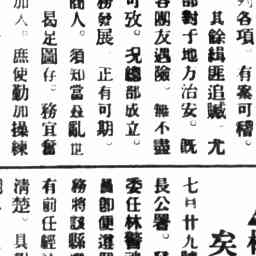 列各項。有案可稽。
其餘緝匪追贓。尤
部對于地方治安。既
容團友遇險。無不盡
可攷。況總部成立。
務發展。正有可期。
商人。須知當茲亂世
曷足圖存。務宜奮
加入。庶使勤加操練
矣
七月廿九號
長公署。
委任林警
員即便遵
務將該縣
有前任經
清楚。具